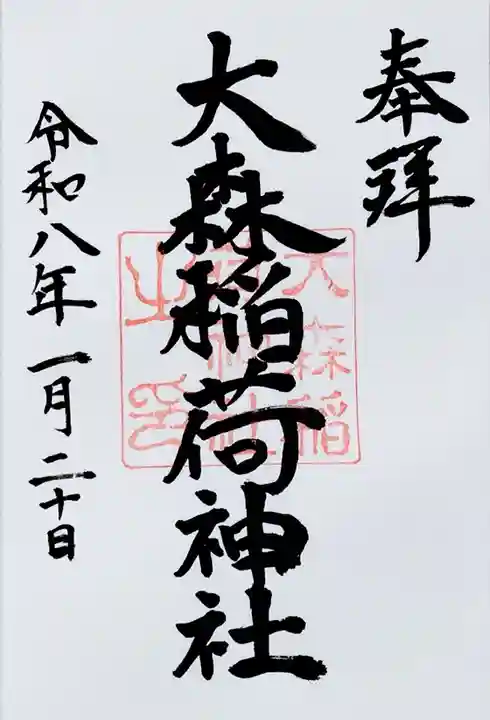 奉拜
大森稲荷神社
大森稲
荷神社
之印
令和八年一月二十日